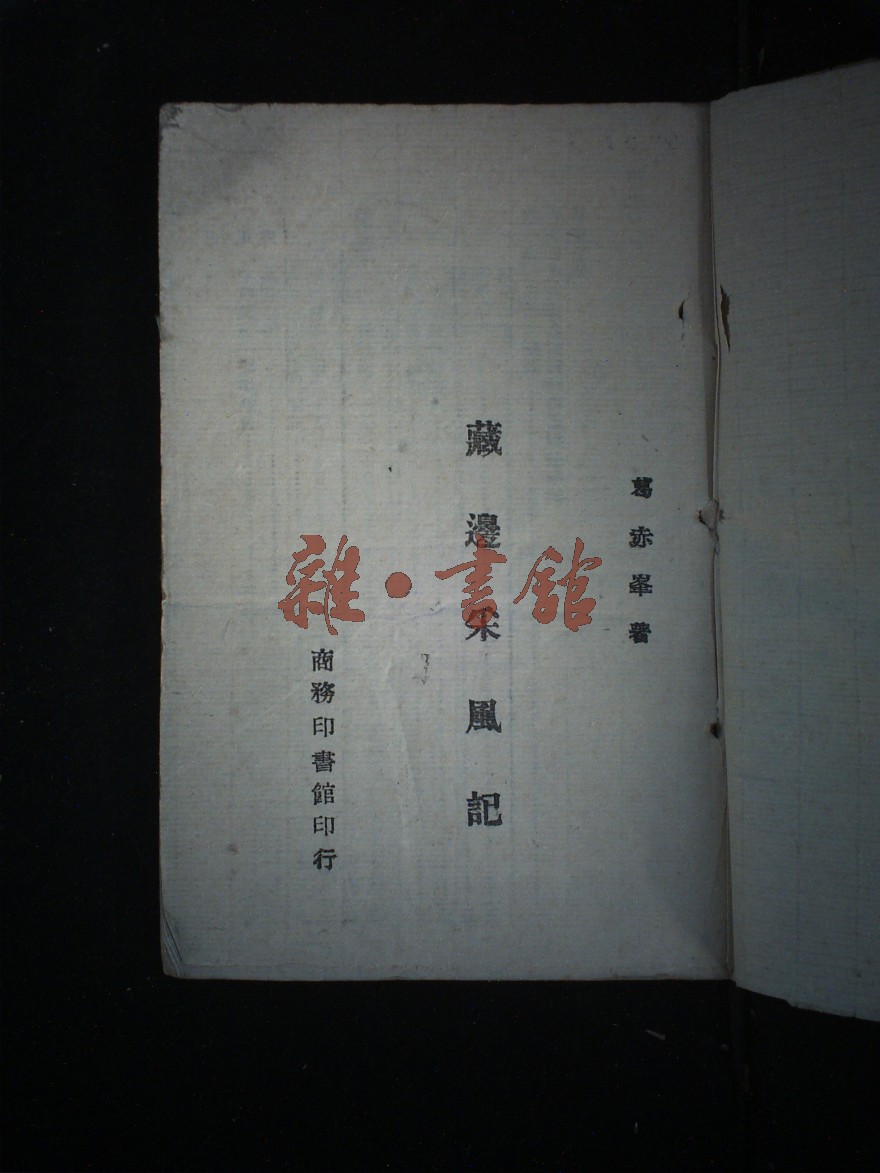 葛赤峯著
藏邊采風記
商務印書館印行
雜·書館